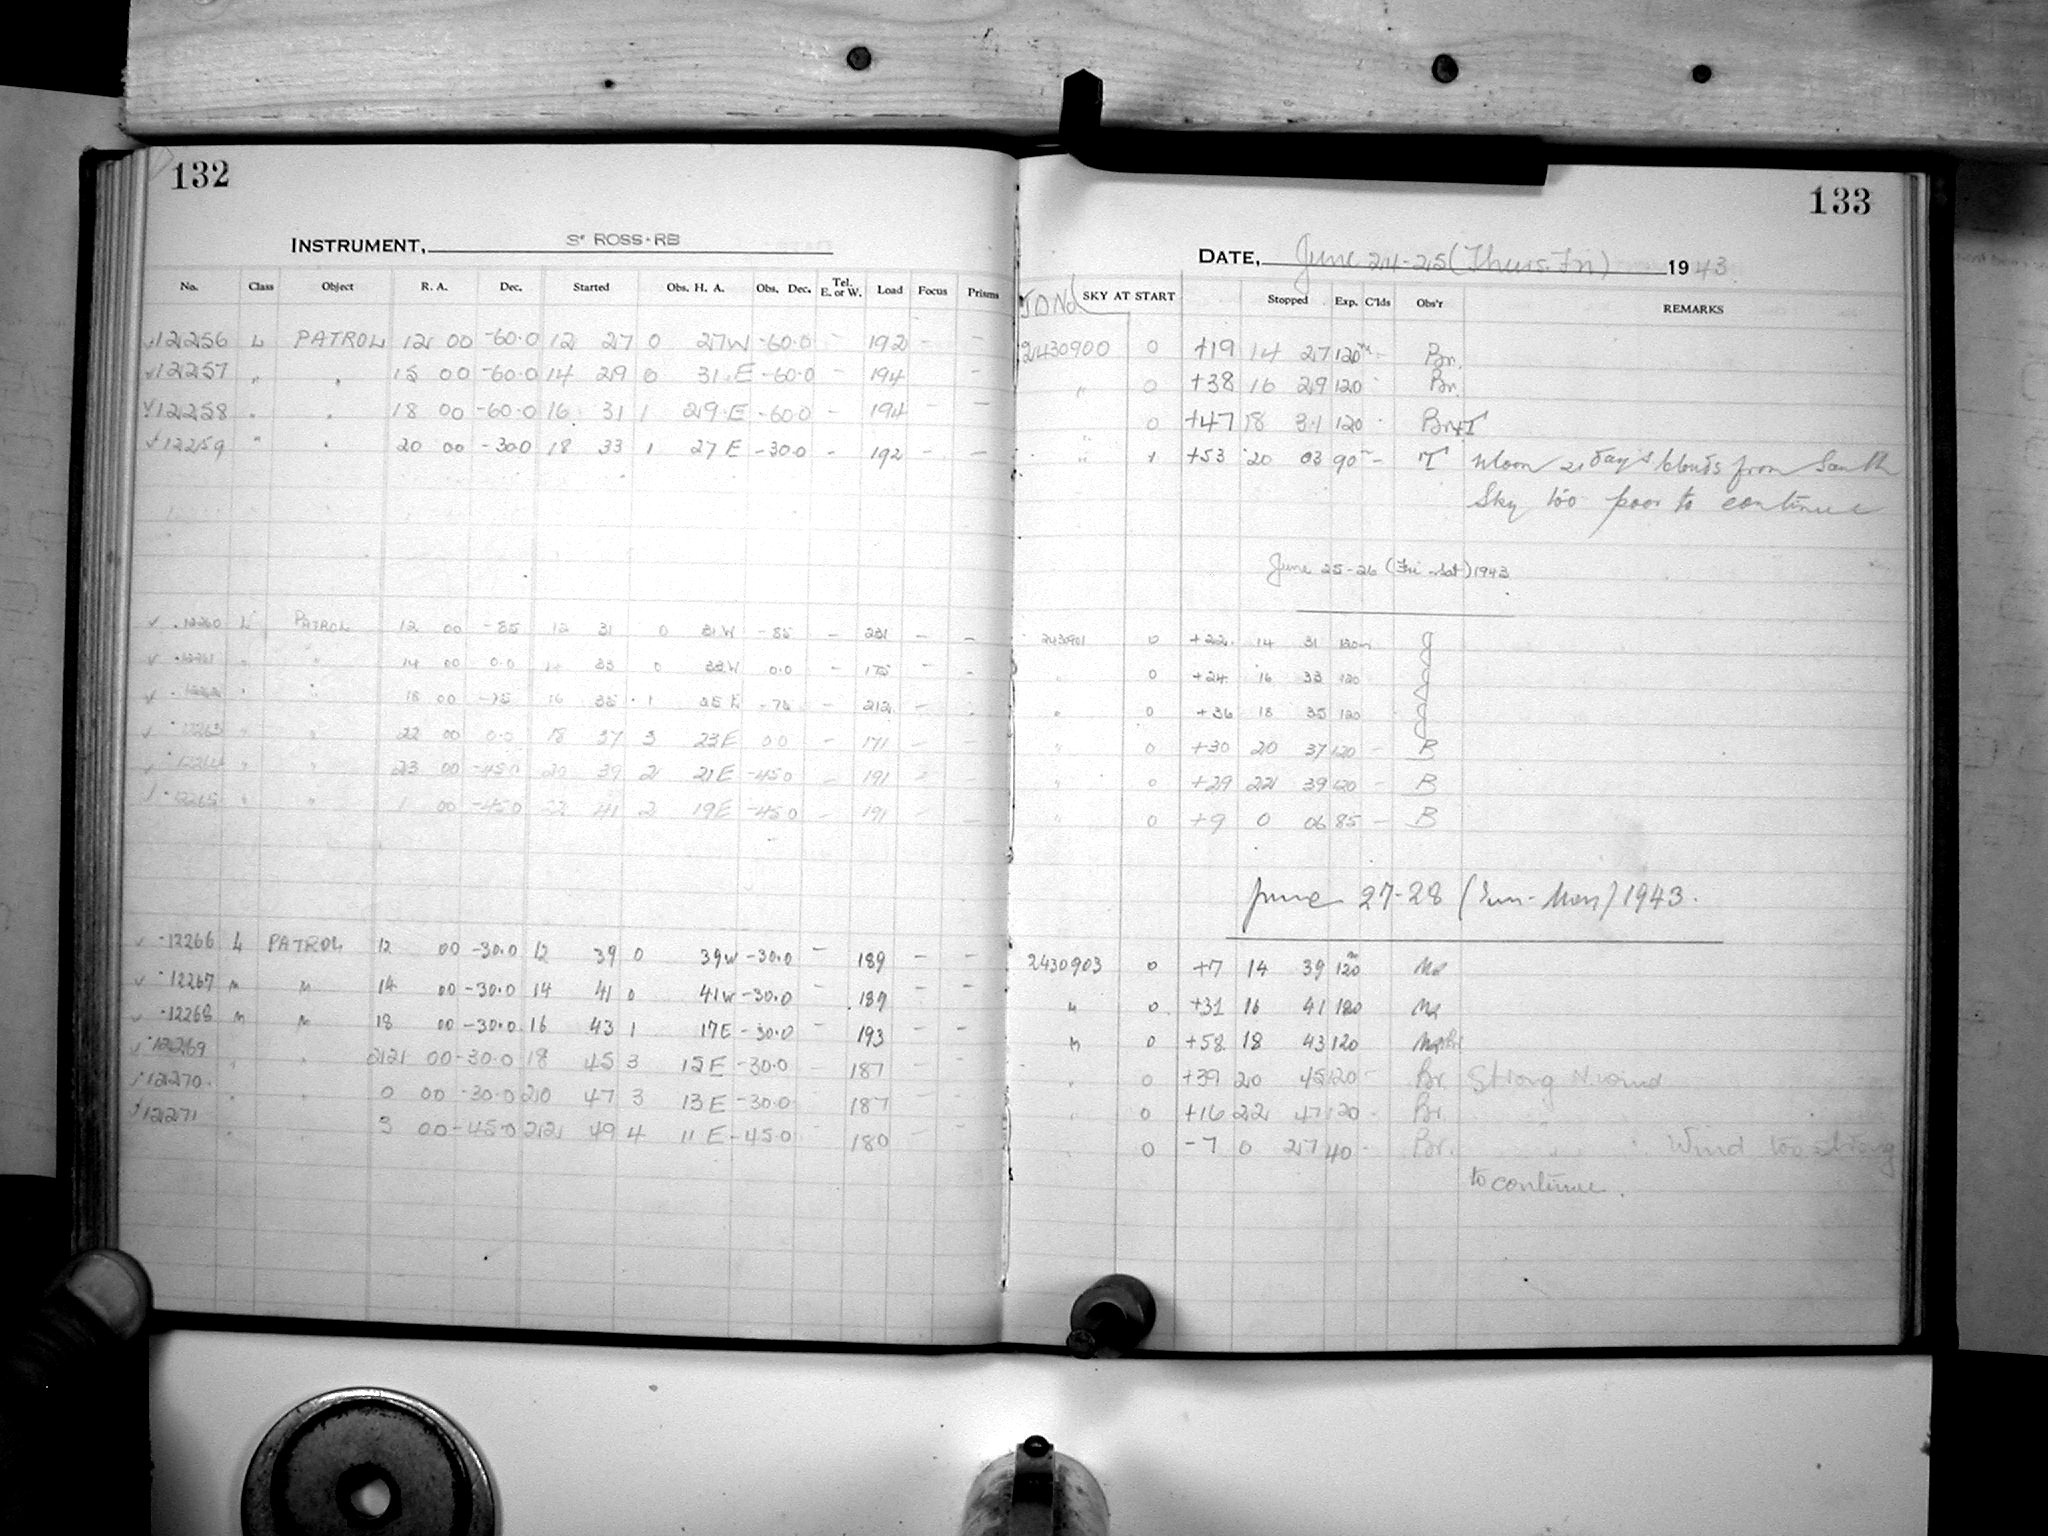 132
INSTRUMENT, 3" ROSS-RB
No. Class Object R. A. Dec. Started Obs. H. A. Obs. Dec. Tel. E. or W. Load Focus Prisms
12256 L PATROL 12 00 -60.0 12 27 0 27W -60.0 - 192 - -
12257 " " 15 00 -60.0 14 29 0 31.E -60.0 - 194 -
12258 " " 18 00 -60.0 16 31 1 29.E -60.0 - 194 - -
12259 " " 20 00 -30.0 18 33 1 27 E -30.0 - 192 - -
12260 L PATROL 12 00 -85 12 31 0 31W -85 - 231 - -
12261 " " 14 00 0.0 33 0 33W 0.0 - 175 - -
" " 18 00 -75 16 35 1 25 E -75 - 212 -
12263 " " 22 00 0.0 18 37 3 23E 00 - 171 - -
12264 " " 23 00 -450 20 39 2 21E -450 - 191 - -
12265 " " 1 00 -450 22 41 2 19E -450 - 191 - -
12266 L PATROL 12 00 -30.0 12 39 0 39W -30.0 - 189 - -
12267 " " 14 00 -30.0 14 41 0 41W -30.0 - 189 - -
12268 " " 18 00 -30.0 16 43 1 17E -30.0 - 193 - -
12269 " " 22 00 -30.0 18 45 3 15E -30.0 - 187 - -
12270 " " 0 00 -30.0 20 47 3 13E -30.0 - 187 - -
12271 " " 3 00 -45.0 22 49 4 11 E -45.0 - 180 - -
133
DATE, June 24-25 (Thurs. Fri) 1943
J.D.No SKY AT START Stopped Exp. C'lds Obs'r REMARKS
2430900 0 +19 14 27 120m - Br.
" 0 +38 16 29 120 - Br.
0 +47 18 31 120 - Br+T
" +53 20 03 90m - T Moon 21 day's Clouds from South
Sky too poor to continue
June 25-26 (Fri-Sat) 1943
2430901 0 +22 14 31 120m J
" 0 +24 16 33 120 J
" 0 +36 18 35 120 J
" 0 +30 20 37 120 - B
" 0 +29 22 39 120 - B
" 0 +9 0 06 85 - B
June 27-28 (Sun-Mon) 1943.
2430903 0 +7 14 39 120m
" 0 +31 16 41 120
" 0 +58 18 43 120
" 0 +39 20 45 120 - Br. Strong N. wind
" 0 +16 22 47 120 - Br.
" 0 -7 0 27 40 - Br. " " " Wind too strong
to continue.